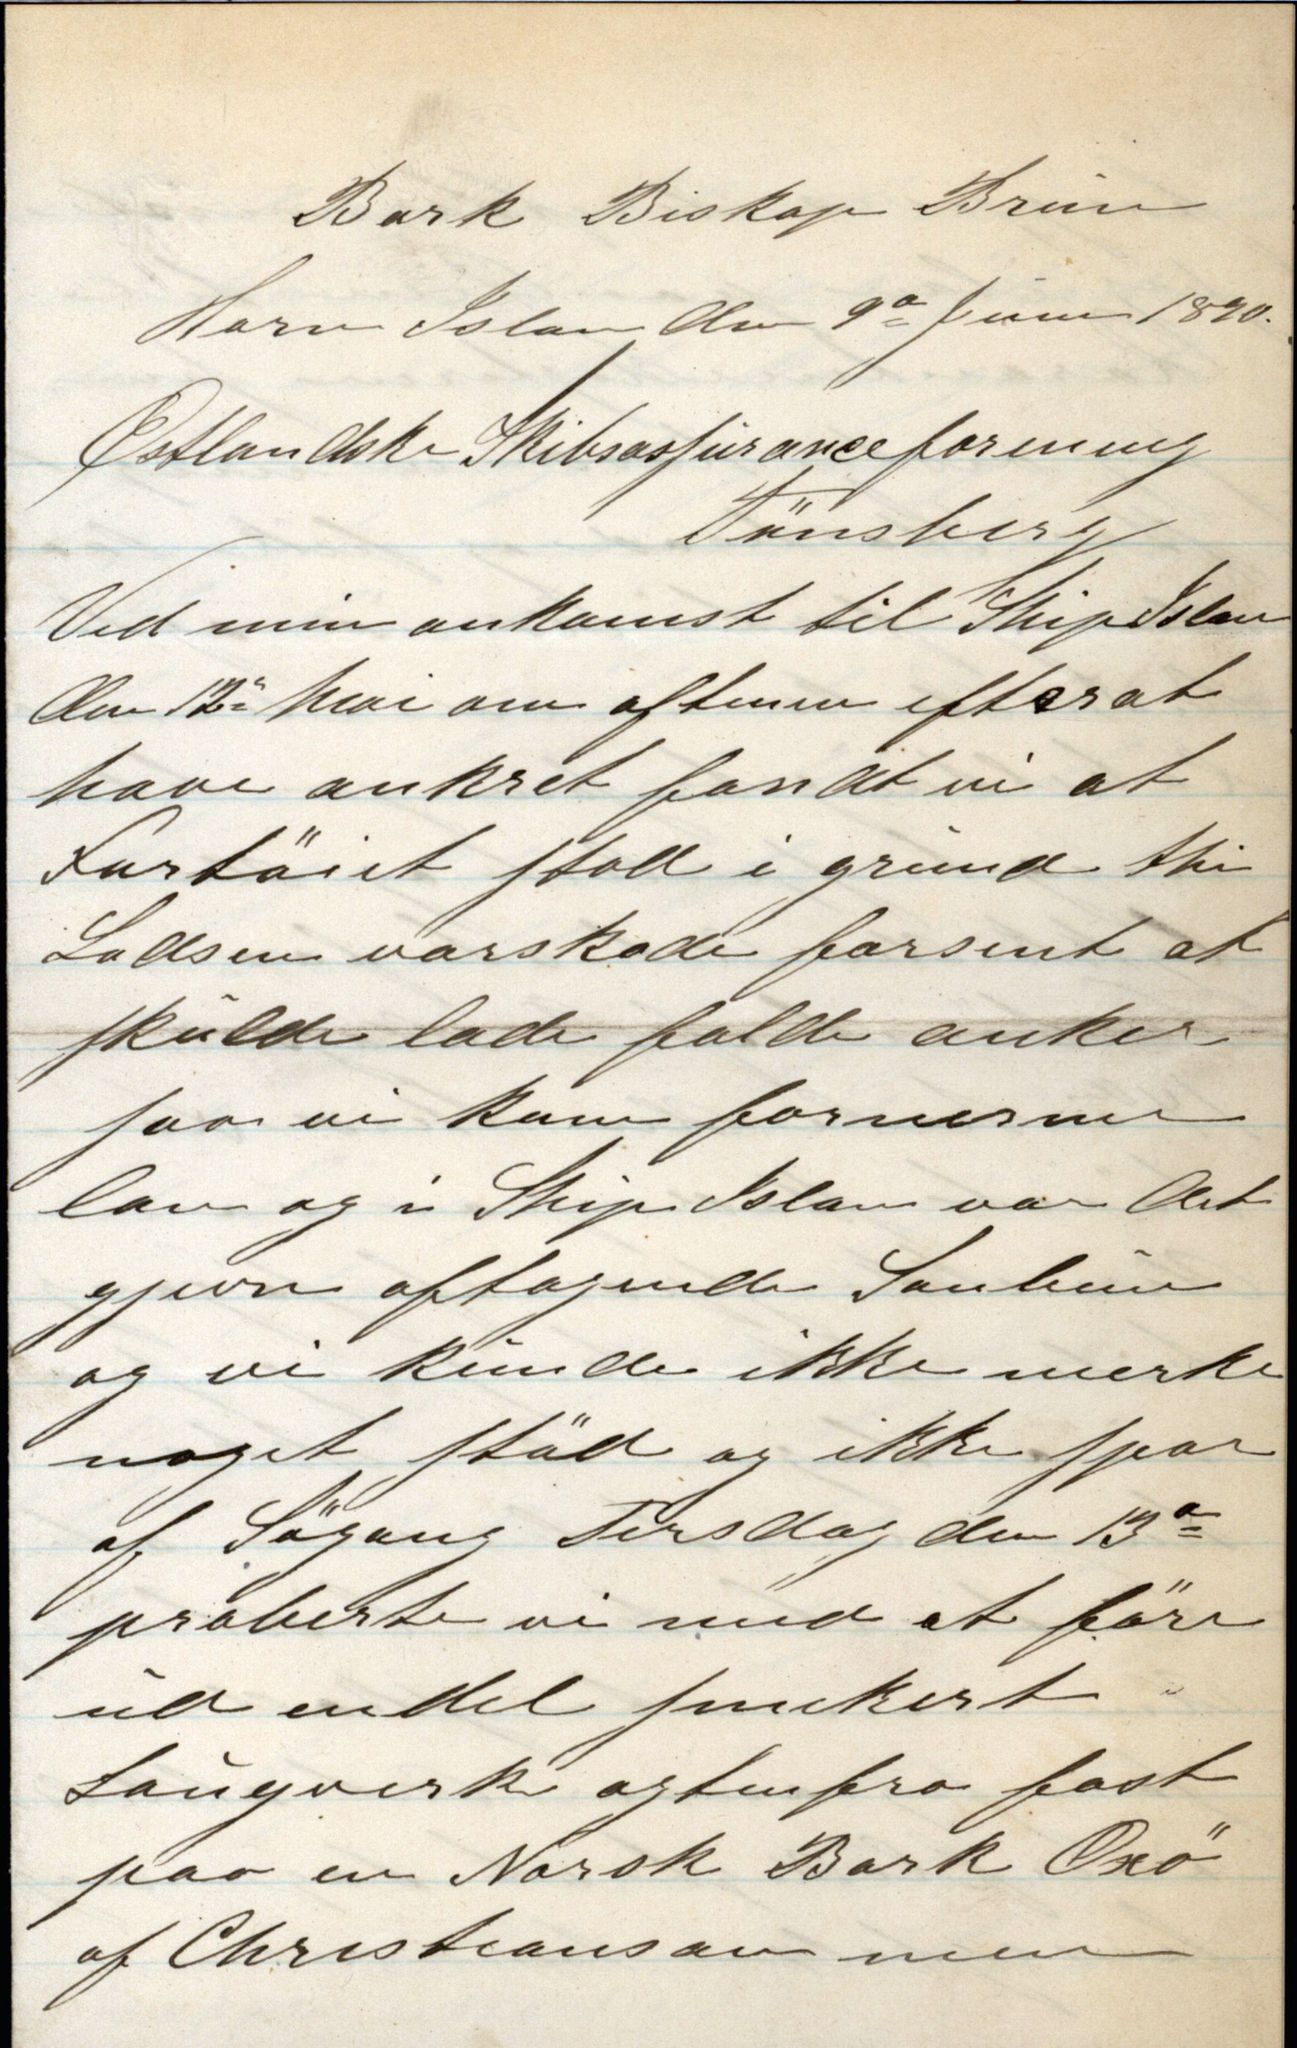 Bark Biskop Brun
Horn Islan den 9a Juni 1890.
Østlandske Skibsassuranceforening
Tönsberg
Ved min ankomst til Ship Islan
den 12a Mai om aftenen efterat
have ankret fandt vi at
Fartöiet stod i grund thi
Lodsen varskode forsent at
skulde lade falde anker
saa vi kom for nerme
lan og i Ship Islan var det
gjern aftagende Lanbun
og vi kunde ikke merke
noget stöd og ikke spor
af Sögang Tirsdag den 13a
proberte vi med at före
ud endel
Taugverk agtenfra fast
paa en Norsk Bark Oxö
af Christiansan men